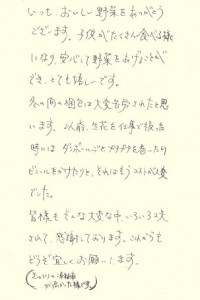 いつも、おいしい野菜をありがとう
ございます。子供がたくさん食べる様
になり、安心して野菜をあげることが
でき、とても嬉しーです。
冬の間の梱包は大変苦労されたと思
います。以前、生花を仕事で扱った
時には ダンボールにもプチプチを巻いたり
ビニールをかけたりと、それはもうコストが大変
でした。
皆様も そんな大変な中、いろいろ工夫
されて、感謝しております。これからも
どうぞ宜しくお願いします。
が届いた様です。